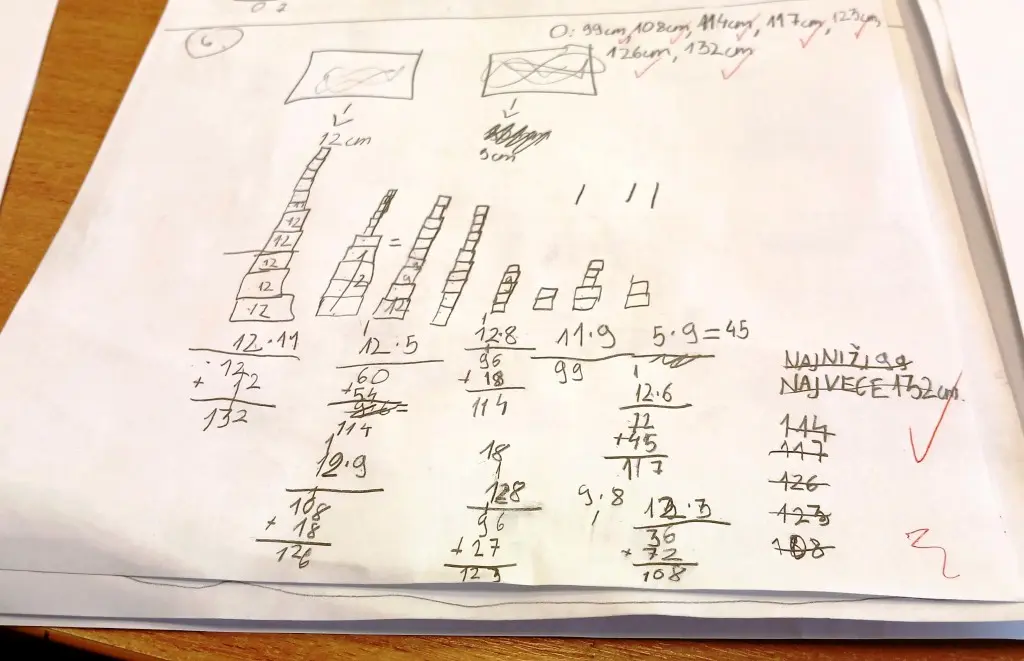 6.
O: 99cm, 108cm, 114cm, 117cm, 123cm,
126cm, 132cm
12cm
9cm
12
12
12
12
12
12
9
12·11
12
+ 12
132
12·5
60
+54
114
12·8
96
+ 18
114
11·9
99
5·9=45
12·6
72
+45
117
12·9
108
+ 18
126
18
128
96
+ 27
123
9·8
12·3
36
+ 72
108
NAJNIŽI 99
NAJVEĆE 132cm.
114
117
126
123
108